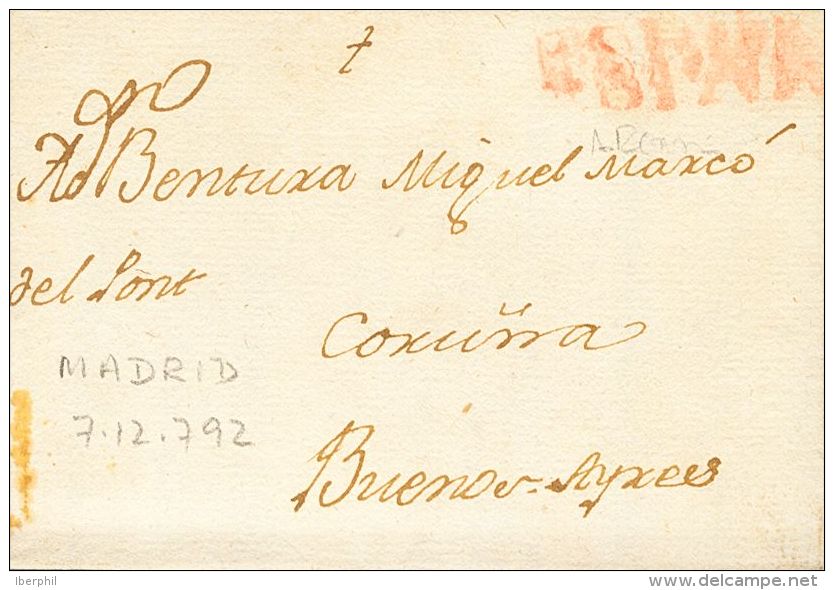 A Dn Bentura Miguel Marcó
del Pont
Coruña
Buenos Ayres
MADRID
7.12.792
Iberphil
delcampe.net